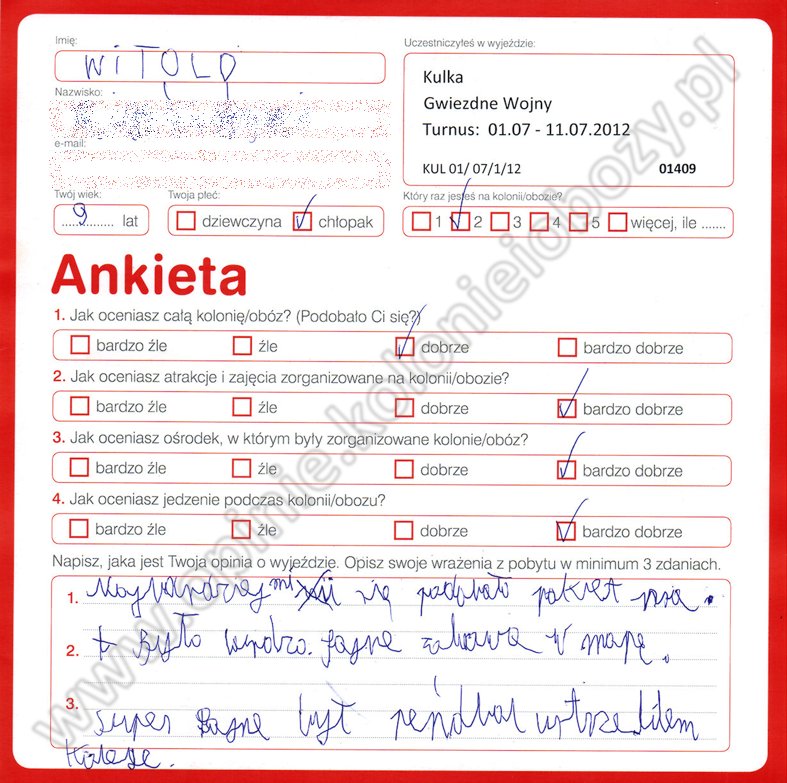 Imię:
WiTOLD
Uczestniczyłeś w wyjeździe:
Kulka
Gwiezdne Wojny
Turnus: 01.07 - 11.07.2012
KUL 01/ 07/1/12 01409
Nazwisko:
e-mail:
Twój wiek:
9 lat
Twoja płeć:
dziewczyna chłopak
Który raz jesteś na kolonii/obozie?
1 2 3 4 5 więcej, ile .......
Ankieta
1. Jak oceniasz całą kolonię/obóz? (Podobało Ci się?)
bardzo źle źle dobrze bardzo dobrze
2. Jak oceniasz atrakcje i zajęcia zorganizowane na kolonii/obozie?
bardzo źle źle dobrze bardzo dobrze
3. Jak oceniasz ośrodek, w którym były zorganizowane kolonie/obóz?
bardzo źle źle dobrze bardzo dobrze
4. Jak oceniasz jedzenie podczas kolonii/obozu?
bardzo źle źle dobrze bardzo dobrze
Napisz, jaka jest Twoja opinia o wyjeździe. Opisz swoje wrażenia z pobytu w minimum 3 zdaniach.
1. mi się podobało
2. Było fajne zabawa w mapę.
3. super fajne był
www.opinie.kolonieiobozy.pl